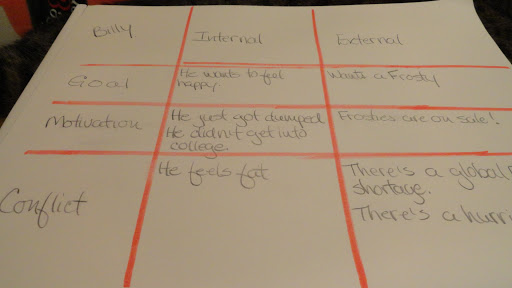 Billy
Internal
External
Goal
He wants to feel
happy.
Wants a Frosty
Motivation
He just got dumped
He didn't get into
college.
Frosties are on sale!
Conflict
He feels fat
There's a global
shortage.
There's a